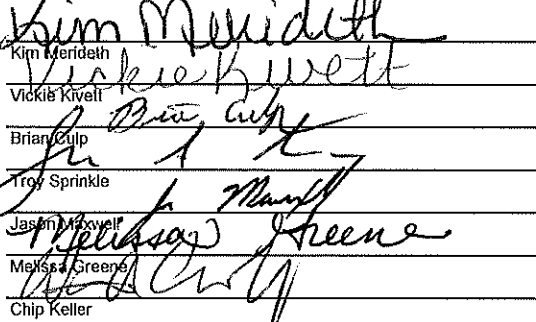 Kim Merideth
Kim Merideth
Vickie Kivett
Vickie Kivett
Brian Culp
Brian Culp
Troy Sprinkle
Jason Maxwell
Melissa Greene
Melissa Greene
Chip Keller